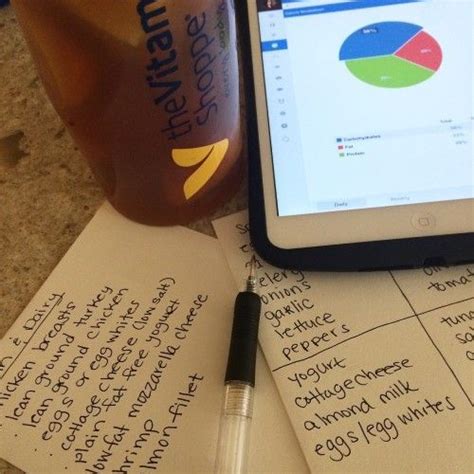 theVitam
Shoppe
Total
Carbohydrates
Fat
Protein
Daily
& Dairy
chicken breasts
lean ground turkey
lean ground chicken
eggs or egg whites
cottage cheese (low salt)
plain fat free yogurt
lowfat mozzarella cheese
shrimp
lmon fillet
elery
onions
garlic
lettuce
peppers
yogurt
cottage cheese
almond milk
eggs/egg whites
toma
tuna